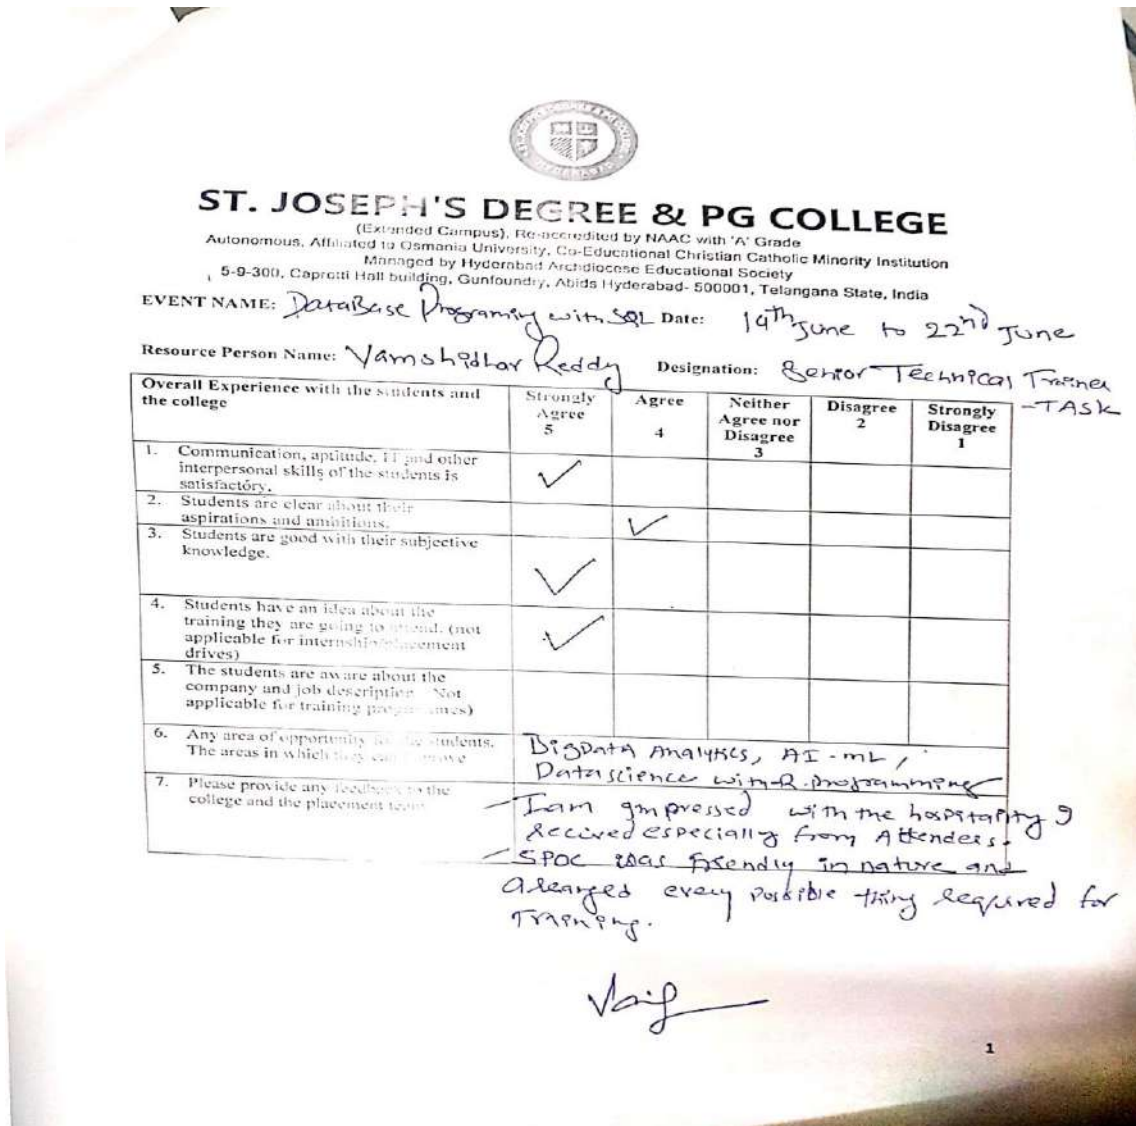 ST. JOSEPH'S DEGREE & PG COLLEGE
(Extended Campus), Re-accredited by NAAC with 'A' Grade
Autonomous, Affiliated to Osmania University, Co-Educational Christian Catholic Minority Institution
Managed by Hyderabad Archdiocese Educational Society
5-9-300, Caprotti Hall building, Gunfoundry, Abids Hyderabad- 500001, Telangana State, India
EVENT NAME: DataBase Programing with SQL Date: 14th June to 22nd June
Resource Person Name: Vamshidhar Reddy Designation: Senior Technical Trainer
-TASK
Overall Experience with the students and
the college
Strongly
Agree
5
Agree
4
Neither
Agree nor
Disagree
3
Disagree
2
Strongly
Disagree
1
1. Communication, aptitude, IT and other
interpersonal skills of the students is
satisfactory.
2. Students are clear about their
aspirations and ambitions.
3. Students are good with their subjective
knowledge.
4. Students have an idea about the
training they are going to attend. (not
applicable for internship/placement
drives)
5. The students are aware about the
company and job description Not
applicable for training programmes)
6. Any area of opportunity for the students.
The areas in which they can improve
BigData Analytics, AI-ML,
Datascience with R. programming
7. Please provide any feedback to the
college and the placement team
- I am impressed with the hospitality I
recived especially from Attenders.
- SPOC was friendly in nature and
arranged every possible thing required for
Training.
1